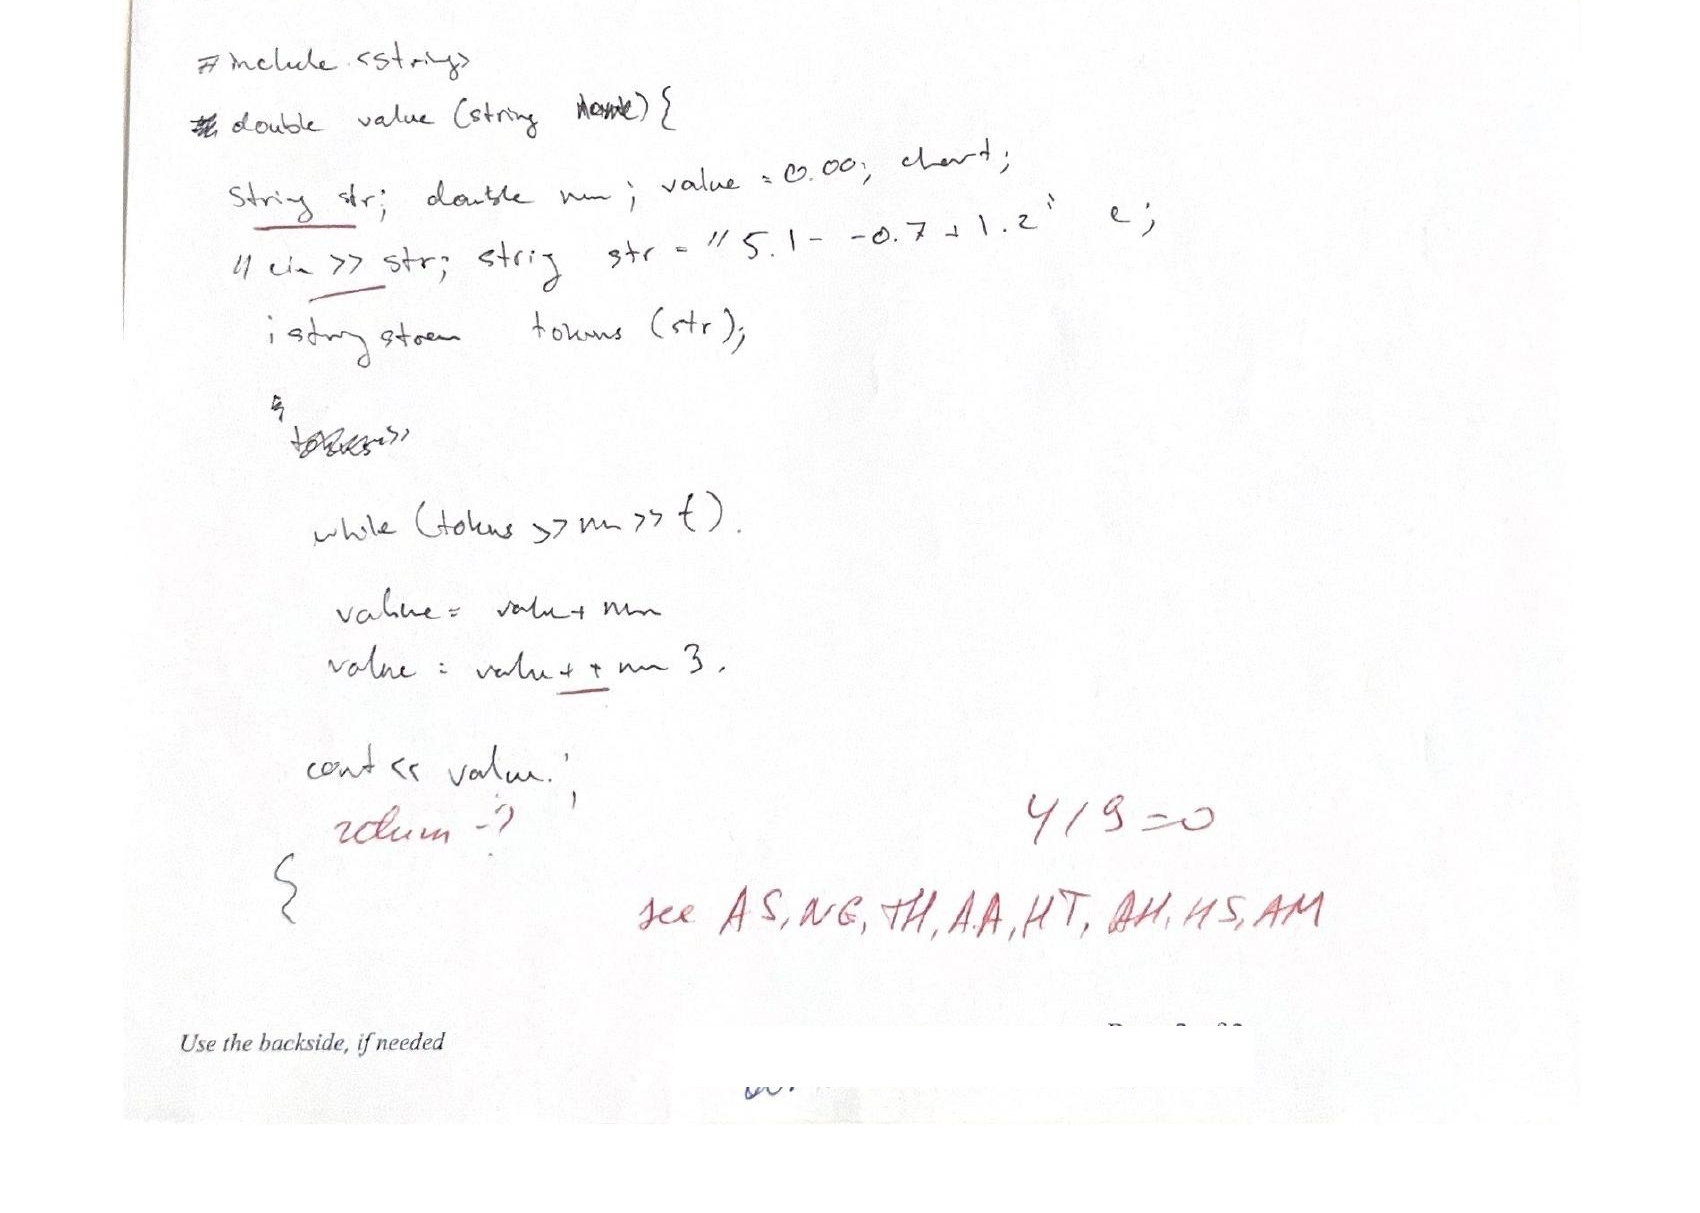 #include <string>
double value (string name) {
String str; double num; value = 0.00; chart;
// cin >> str; strig str = "5.1- -0.7+1.2" e;
istringstream tokens (str);
tokens>>
while (tokens >> num >> t).
value = value + num
value = value + + num 3.
cout << value.;
return -?
{
4/9=0
see AS, NG, TH, AA, HT, AH, HS, AM
Use the backside, if needed